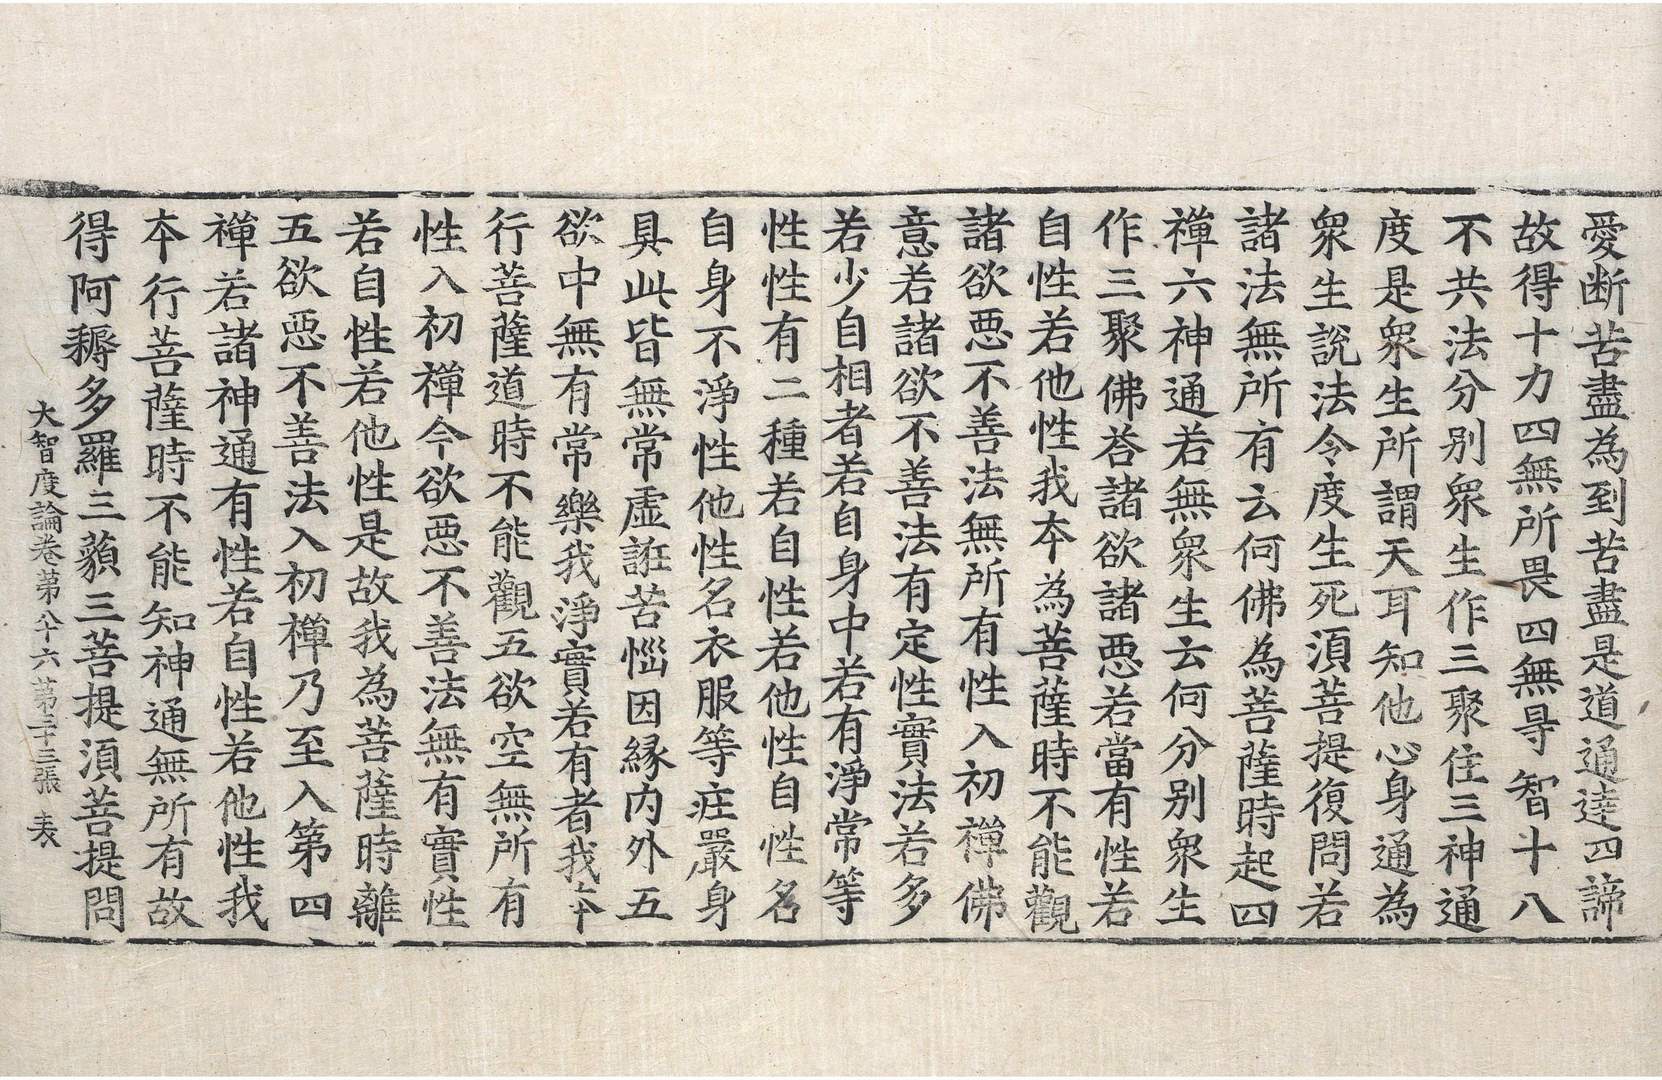 愛断苦盡為到苦盡是道通達四諦
故得十力四無所畏四無㝵智十八
不共法分别衆生作三聚住三神通
度是衆生所謂天耳知他心身通為
衆生說法令度生死湏菩提復問若
諸法無所有云何佛為菩薩時起四
禪六神通若無衆生云何分别衆生
作三聚佛荅諸欲諸惡若當有性若
自性若他性我本為菩薩時不能觀
諸欲惡不善法無所有性入初禪佛
意若諸欲不善法有定性實法若多
若少自相者若自身中若有淨常等
性性有二種若自性若他性自性名
自身不淨性他性名衣服等庄嚴身
具此皆無常虛誑苦惱因緣内外五
欲中無有常樂我淨實若有者我本
行菩薩道時不能觀五欲空無所有
性入初禪今欲惡不善法無有實性
若自性若他性是故我為菩薩時離
五欲惡不善法入初禪乃至入第四
禪若諸神通有性若自性若他性我
本行菩薩時不能知神通無所有故
得阿耨多羅三藐三菩提湏菩提問
大智度論卷第八十六 第三十三張 表